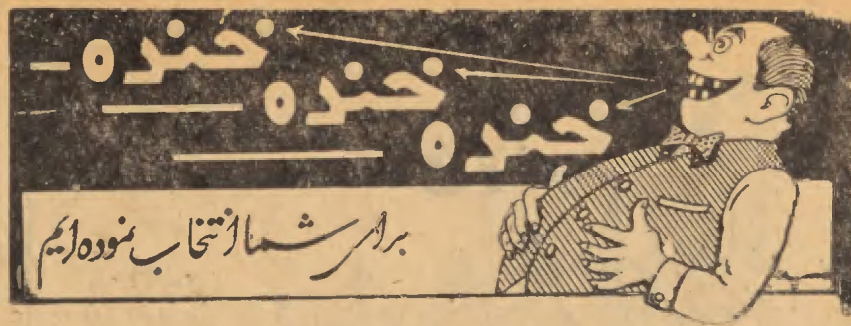 خنده
خنده
خنده
برای شما انتخاب نموده‌ایم